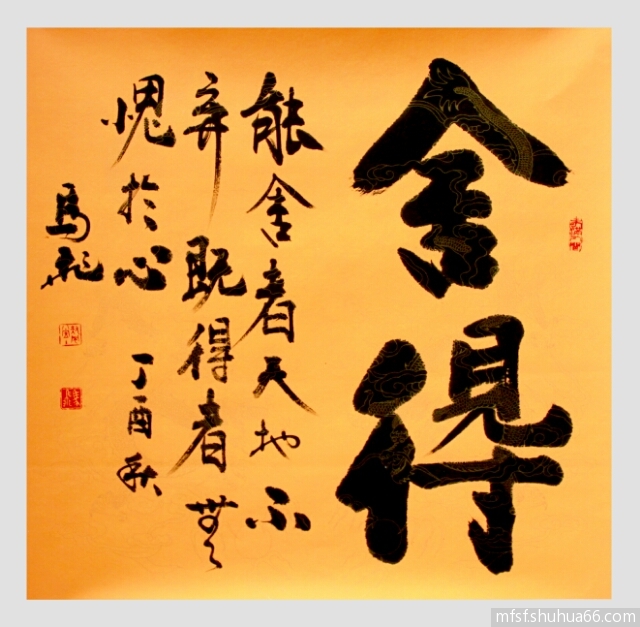 舍得
能舍者天地不
弃既得者無
愧於心 丁酉秋
馬飛
mfsf.shuhua66.com